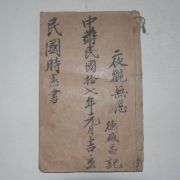 一夜觀無忌
德盛昌記
中華民國拾七年元月吉立
民國時憲書